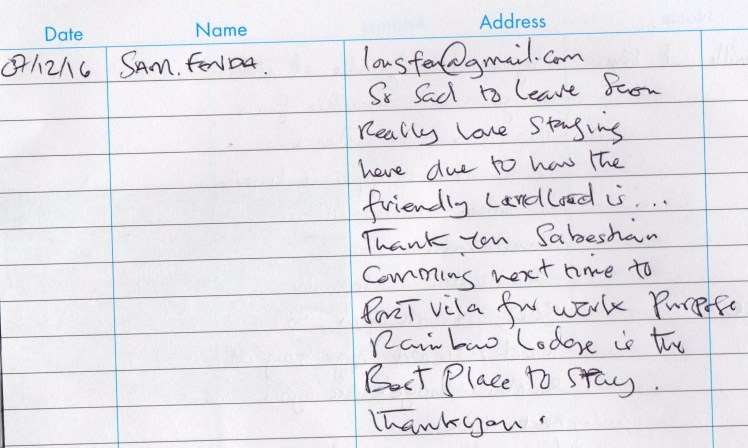 Date Name Address
07/12/16 SAM. FENDA. lonsfen@gmail.com
So Sad to leave Soon
Really Love Staying
here due to how the
friendly Landload is...
Thank you Sabeshian
Comming next time to
Port Vila for work Purpose
Rainbow Lodge is the
Best Place to stay.
Thankyou.